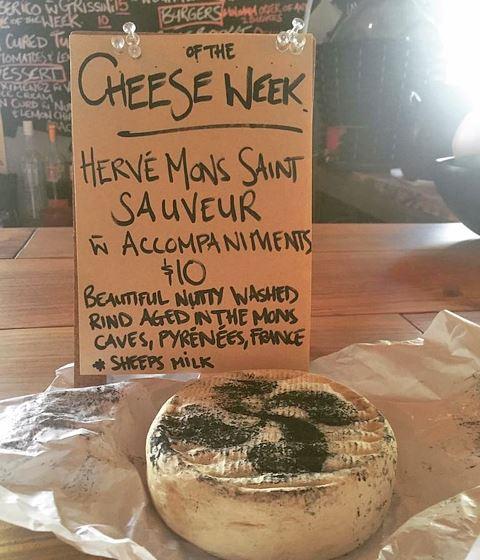 BERICO W GRISSINI 15
OF THE WEEK 10
CURED
TOMATOES &
DESSERT
BURGERS
CHEESE WEEK
OF THE
HERVÉ MONS SAINT
SAUVEUR
W ACCOMPANIMENTS
$10
BEAUTIFUL NUTTY WASHED
RIND AGED IN THE MONS
CAVES, PYRÉNÉES, FRANCE
* SHEEPS MILK